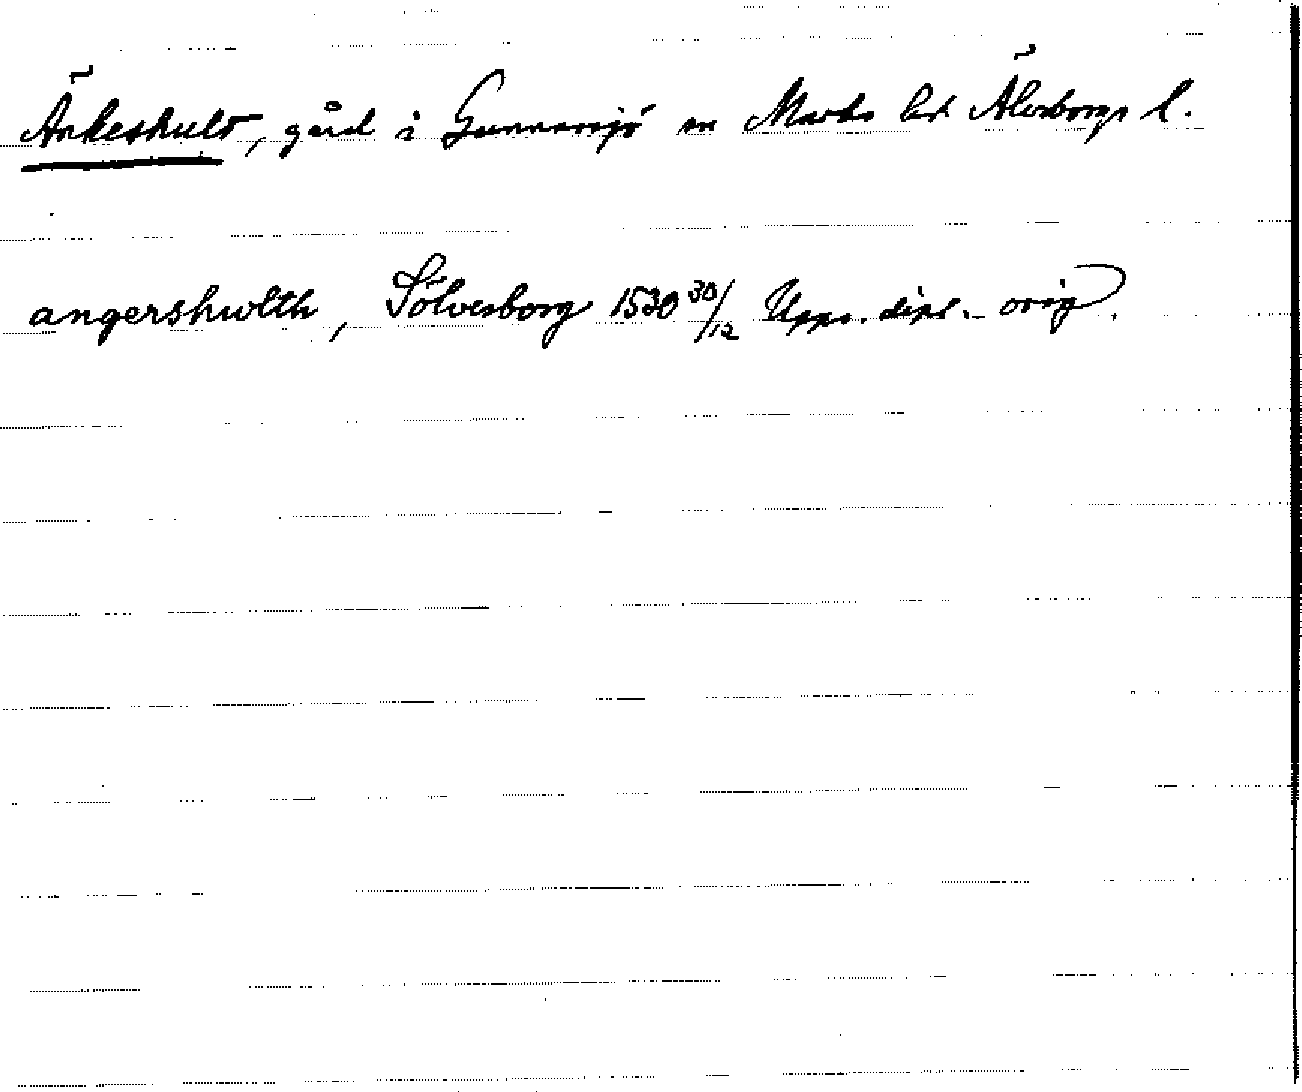 Änkeshult, gård i Gunnarsjö sn Marks hd Älvsborgs l.
angershwlth, Sölvesborg 1530 30/12 Upps. dipl. orig.